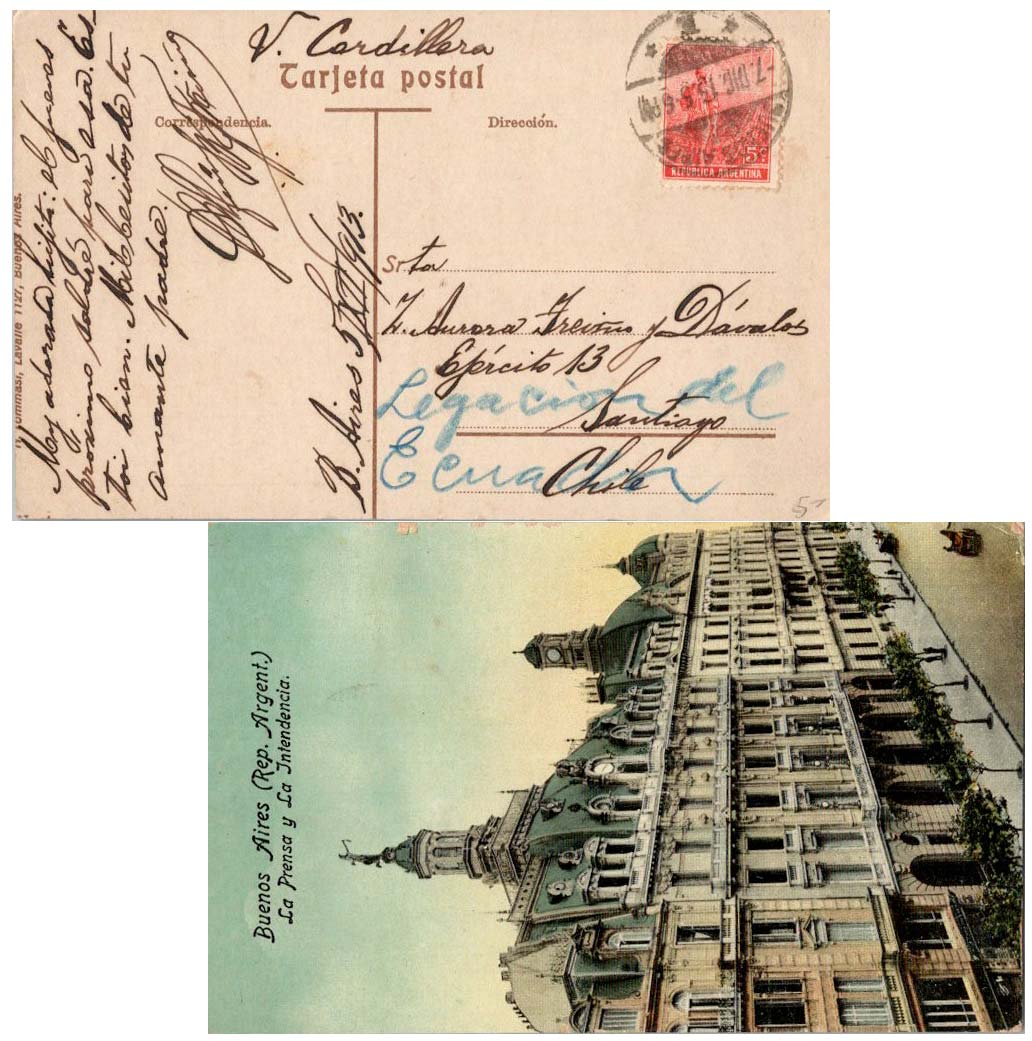 V. Cordillera
Tarjeta postal
Correspondencia.
Dirección.
7. DIC. 13. 6 PM
5c
REPUBLICA ARGENTINA
Tommasi, Lavalle 1127, Buenos Aires.
Muy adorada hijita: el jueves
próximo saldré para esa. Es-
toi bien. Mil besitos de tu
amante padre.
B. Aires 5/XII/913.
Srta
Z. Aurora Freire y Dávalos
Ejército 13
Legacion del
Santiago
Ecuador
Chile
51
Buenos Aires (Rep. Argent.)
La Prensa y La Intendencia.